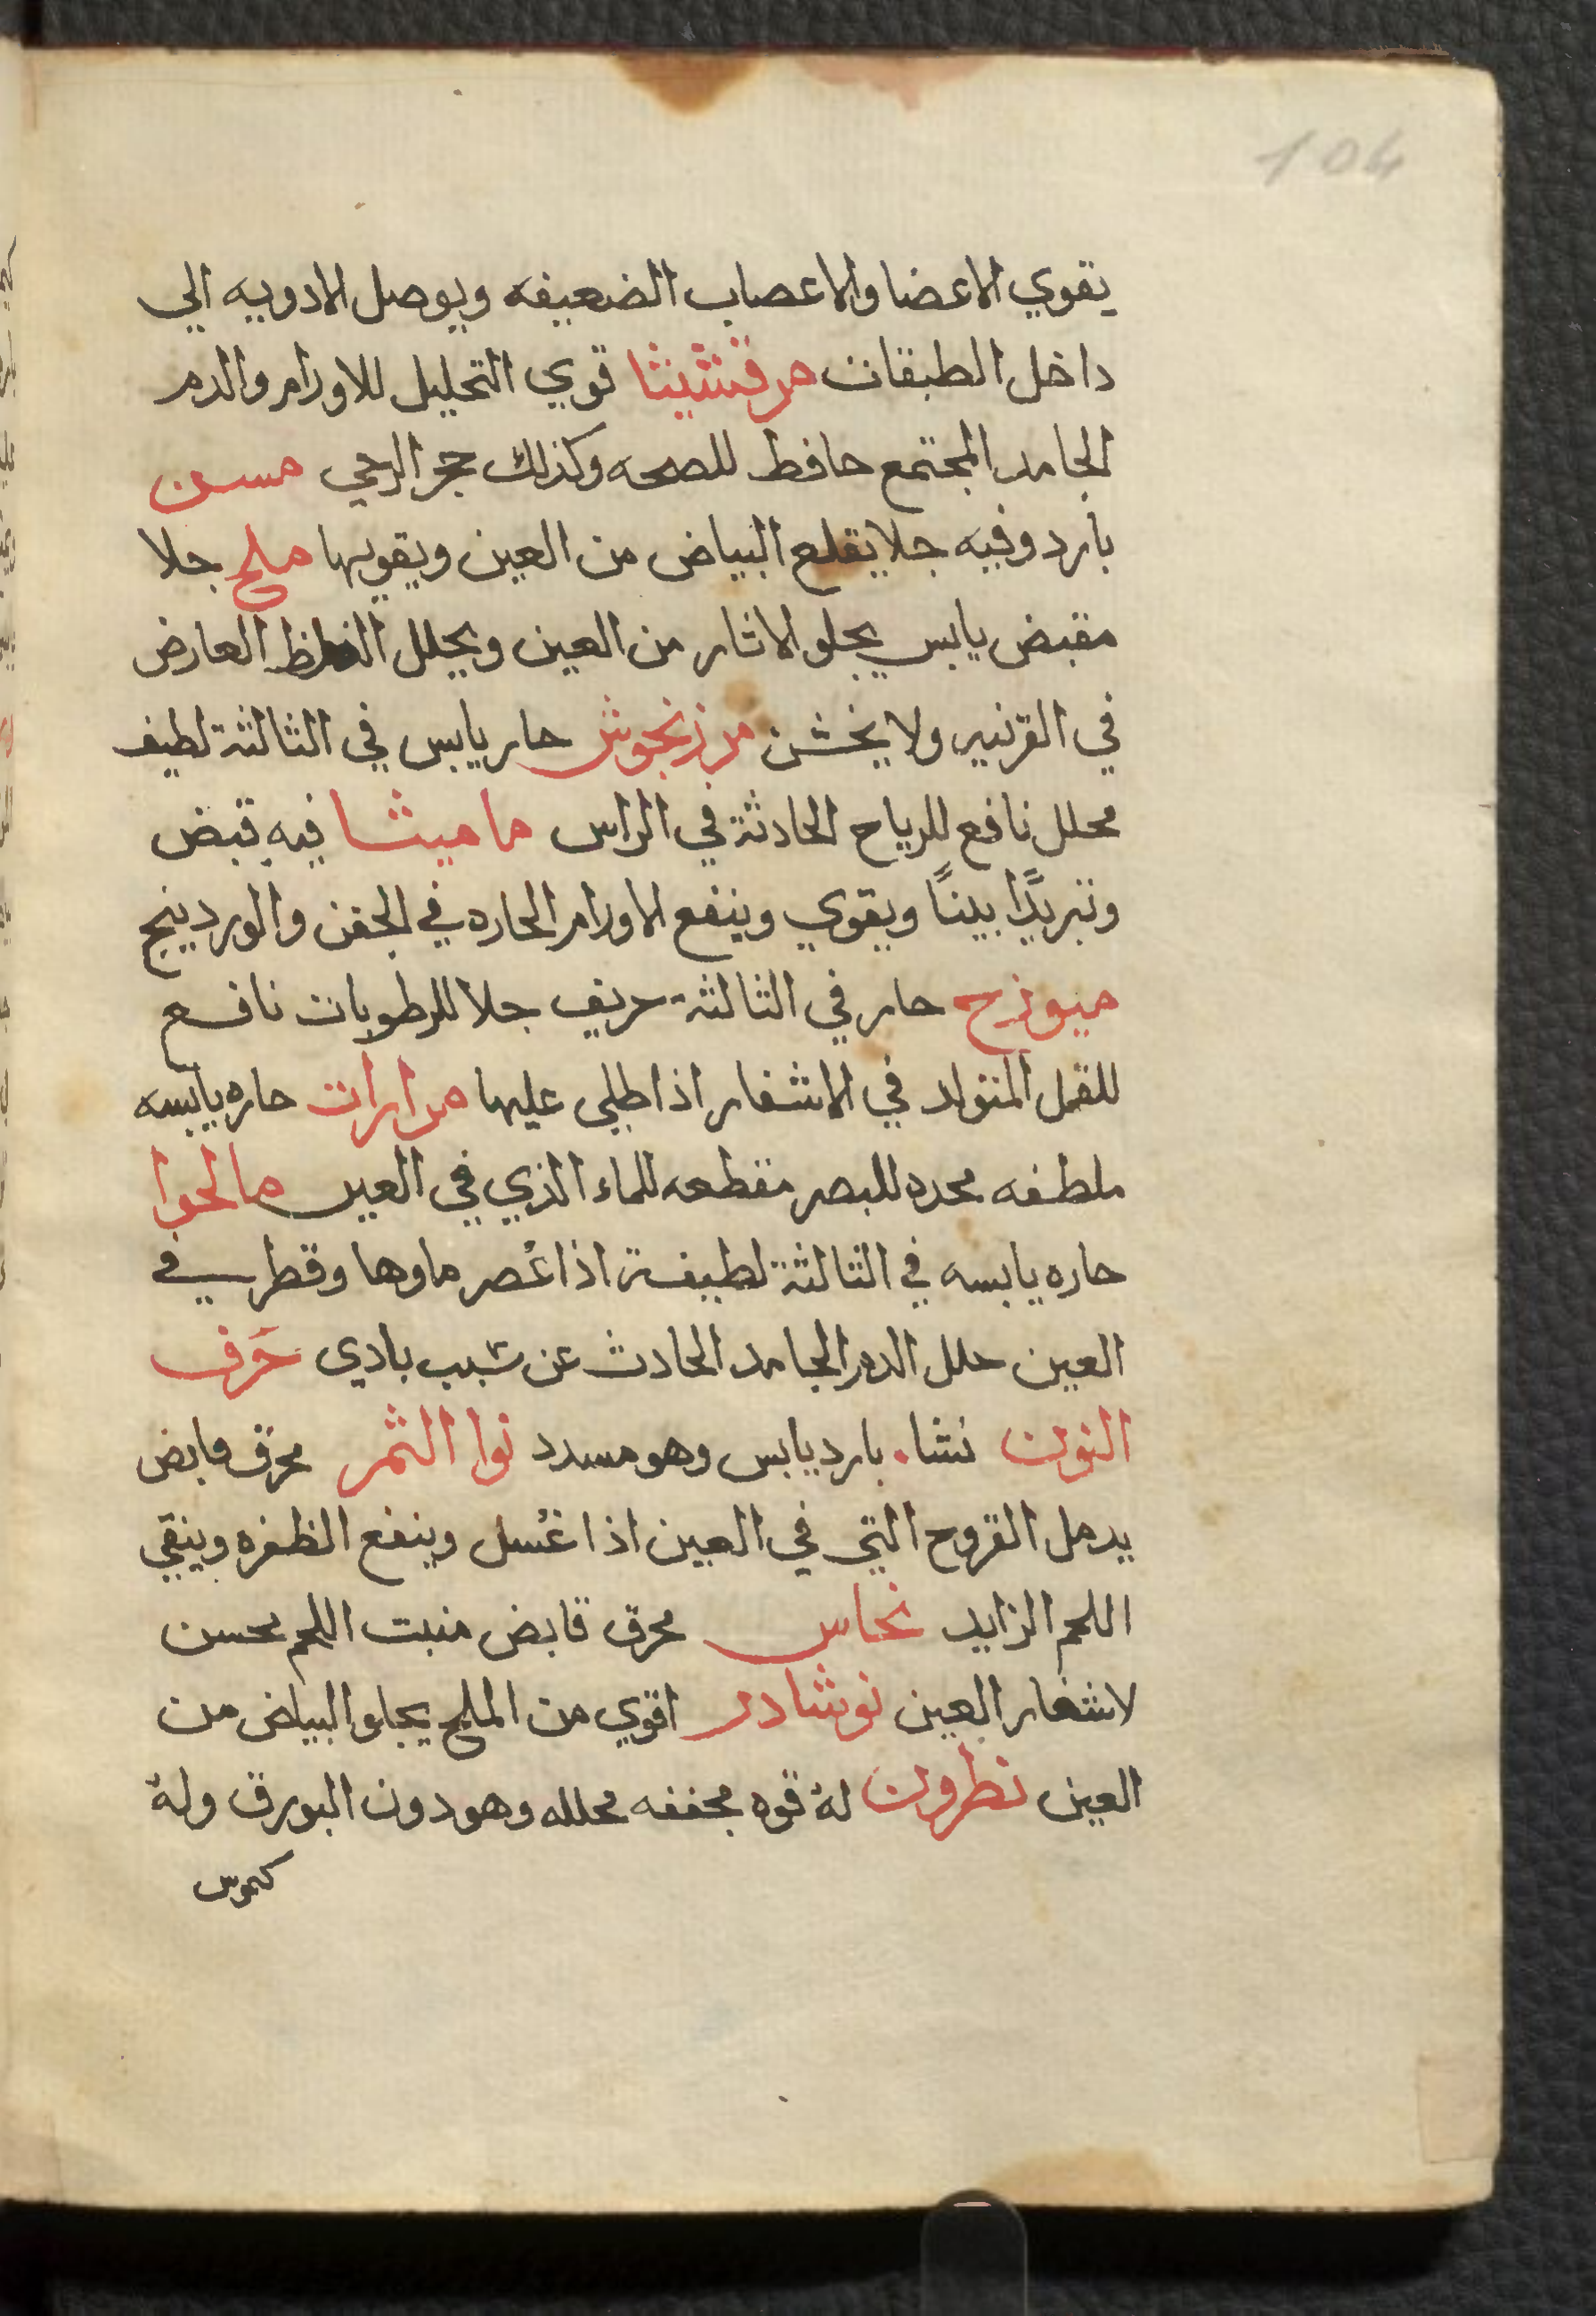 104
يقوي الاعضا والاعصاب الضعيفه ويوصل الادويه الي
داخل الطبقات مرقشيثا قوي التحليل للاورام والدم
الجامد المجتمع حافظ للصحه وكذلك حجر الرحي مسن
بارد وفيه جلا يقلع البياض من العين ويقويها ملح جلا
مقبض يابس يجلو الاثار من العين ويحلل الغلظ العارض
في القرنيه ولا يخشن مرزنجوش حار يابس في الثالثة لطيف
محلل نافع للرياح الحادثة في الراس ماميثا فيه قبض
وتبريدًا بينًا ويقوي وينفع الاورام الحاره في الجفن والوردينج
ميوزج حار في الثالثة حريف جلا للرطوبات نافع
للقمل المتولد في الاشفار اذا طلي عليها مرارات حاره يابسه
ملطفه محده للبصر مقطعه للماء الذي في العين مالحوا
حاره يابسه في الثالثة لطيفة اذا عُصر ماوها وقطر في
العين حلل الدم الجامد الحادث عن سبب بادي حَرف
النون نشاء بارد يابس وهو مسدد نوا الثمر محرق قابض
يدمل القروح التي في العين اذا غُسل وينفع الظفره وينقي
اللحم الزايد نحاس محرق قابض منبت اللحم محسن
لاشفار العين نوشادر اقوي من الملح يجلو البياض من
العين نطرون لهُ قوه مجففه محلله وهو دون البورق ولهُ